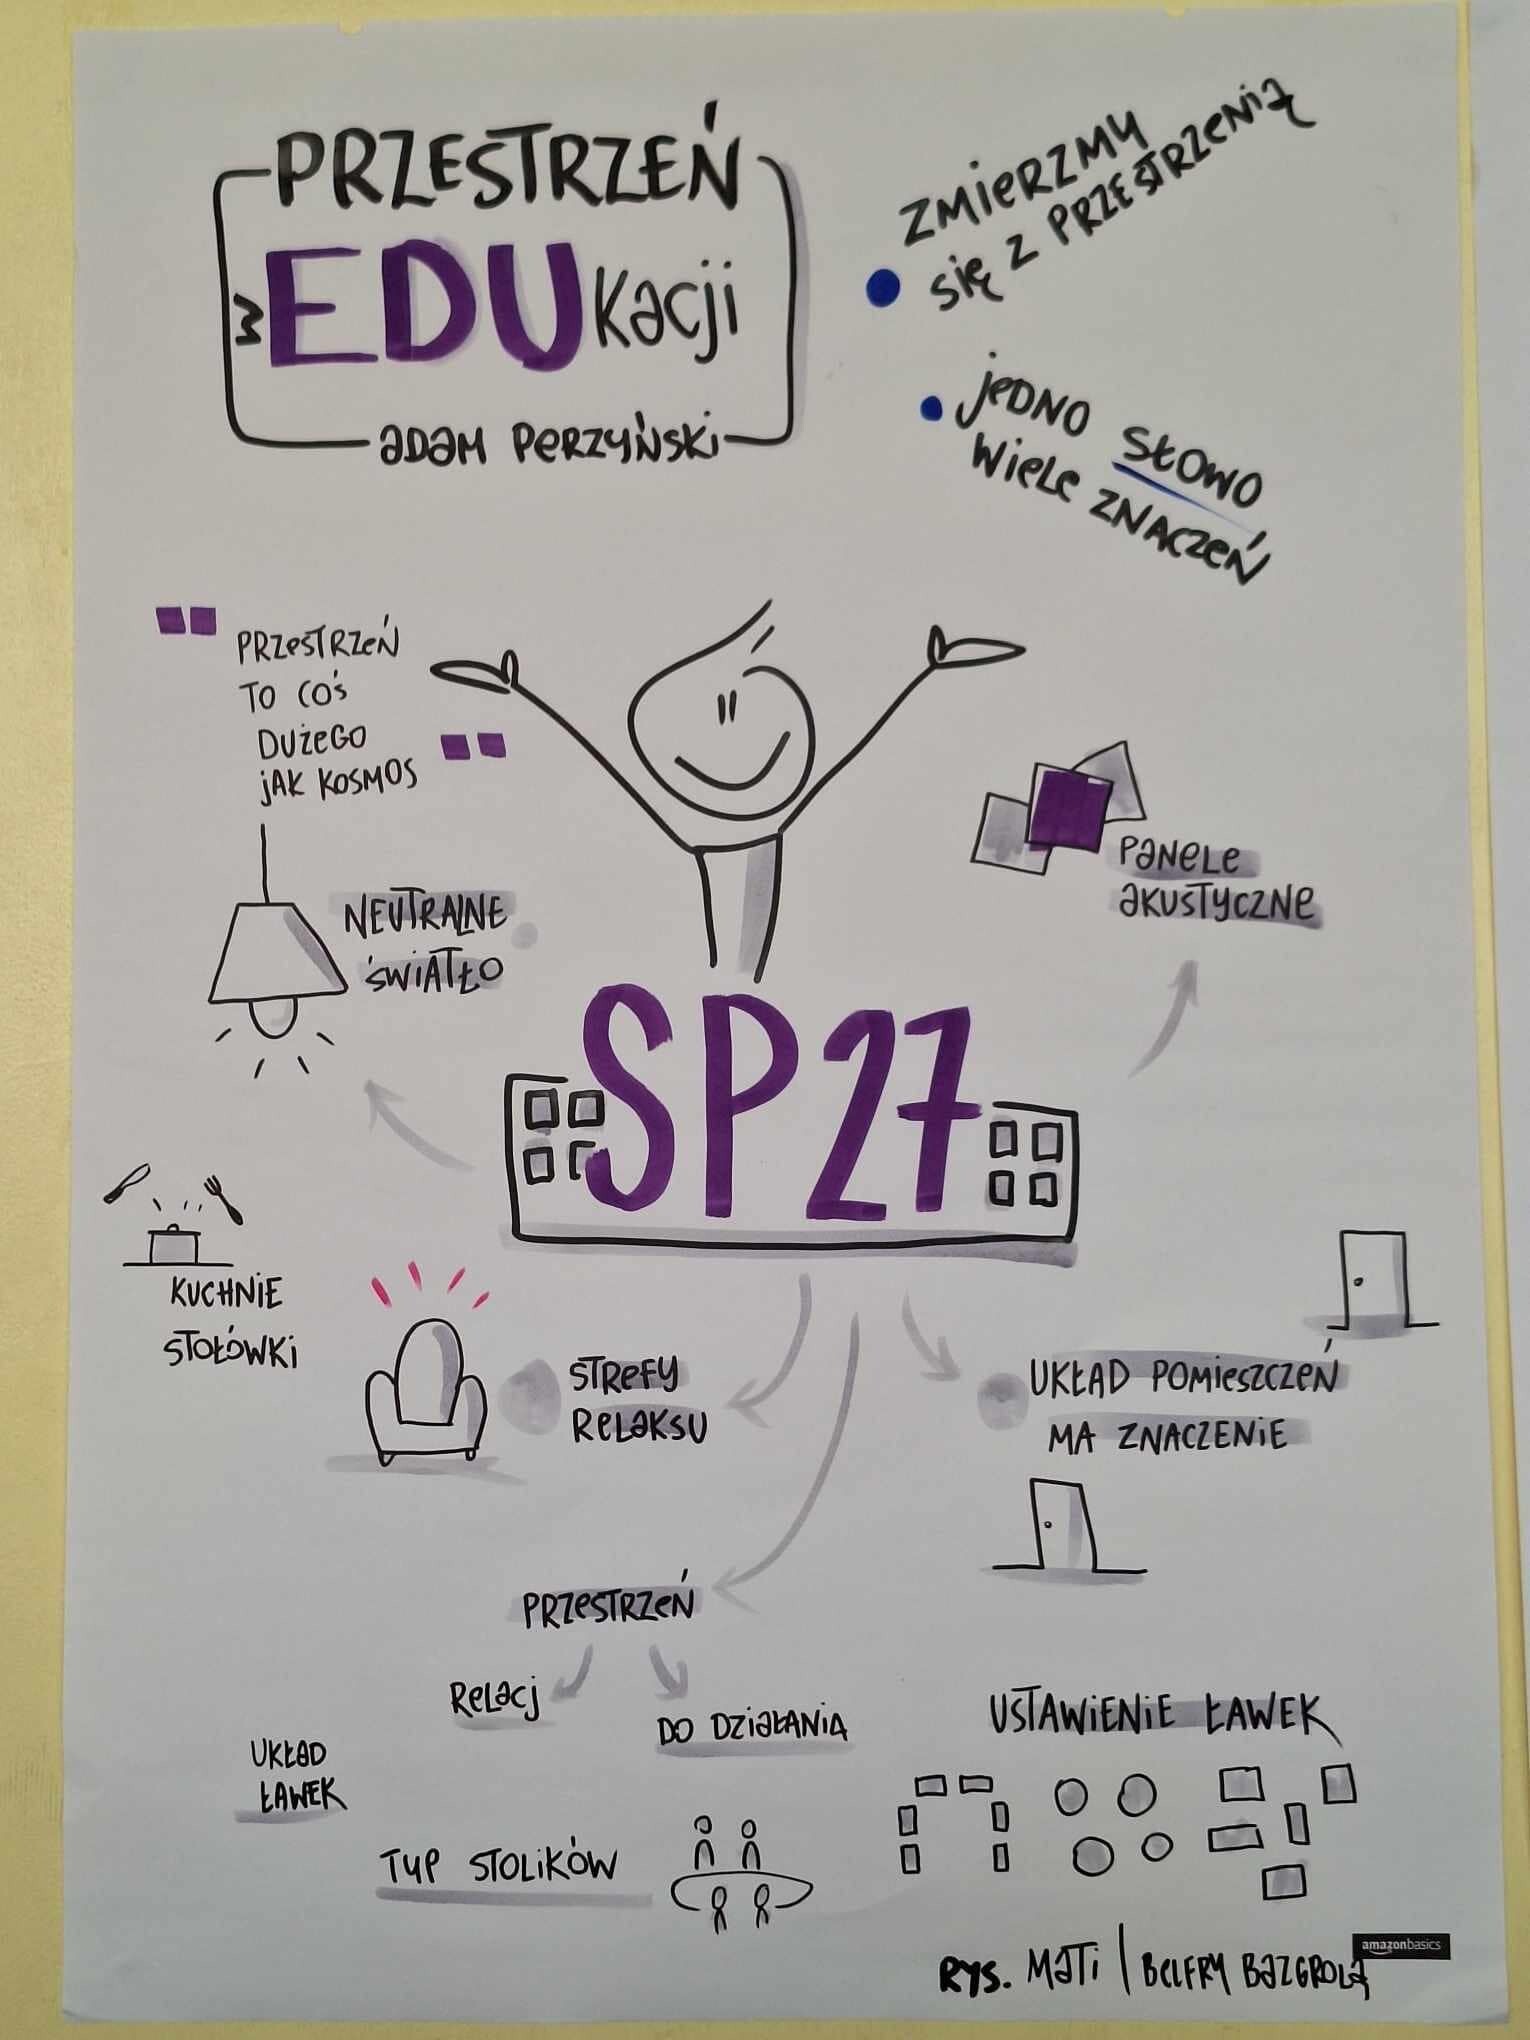 PRZESTRZEŃ
W EDUkacji
ADAM PERZYŃSKI
ZMIERZMY
SIĘ Z PRZESTRZENIĄ
JEDNO SŁOWO
WIELE ZNACZEŃ
PRZESTRZEŃ
TO COŚ
DUŻEGO
JAK KOSMOS
NEUTRALNE
ŚWIATŁO
PANELE
AKUSTYCZNE
SP27
KUCHNIE
STOŁÓWKI
STREFY
RELAKSU
UKŁAD POMIESZCZEŃ
MA ZNACZENIE
PRZESTRZEŃ
RELACJ
DO DZIAŁANIA
UKŁAD
ŁAWEK
TYP STOLIKÓW
USTAWIENIE ŁAWEK
RYS. MATI | BELFRY BAZGROLĄ
amazonbasics